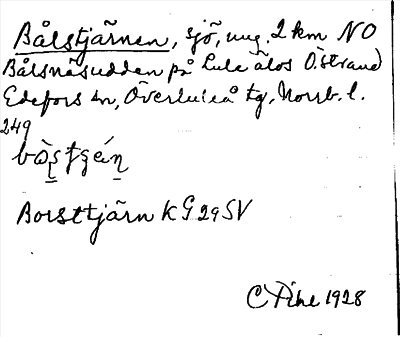 Bålstjärnen, sjö, ung. 2 km NO
Bålsnäsudden på Lule älvs Östrand
Edefors sn, Överluleå tg, Norrb. l.
249
Borsttjärn KG 29 SV
C Pihl 1928